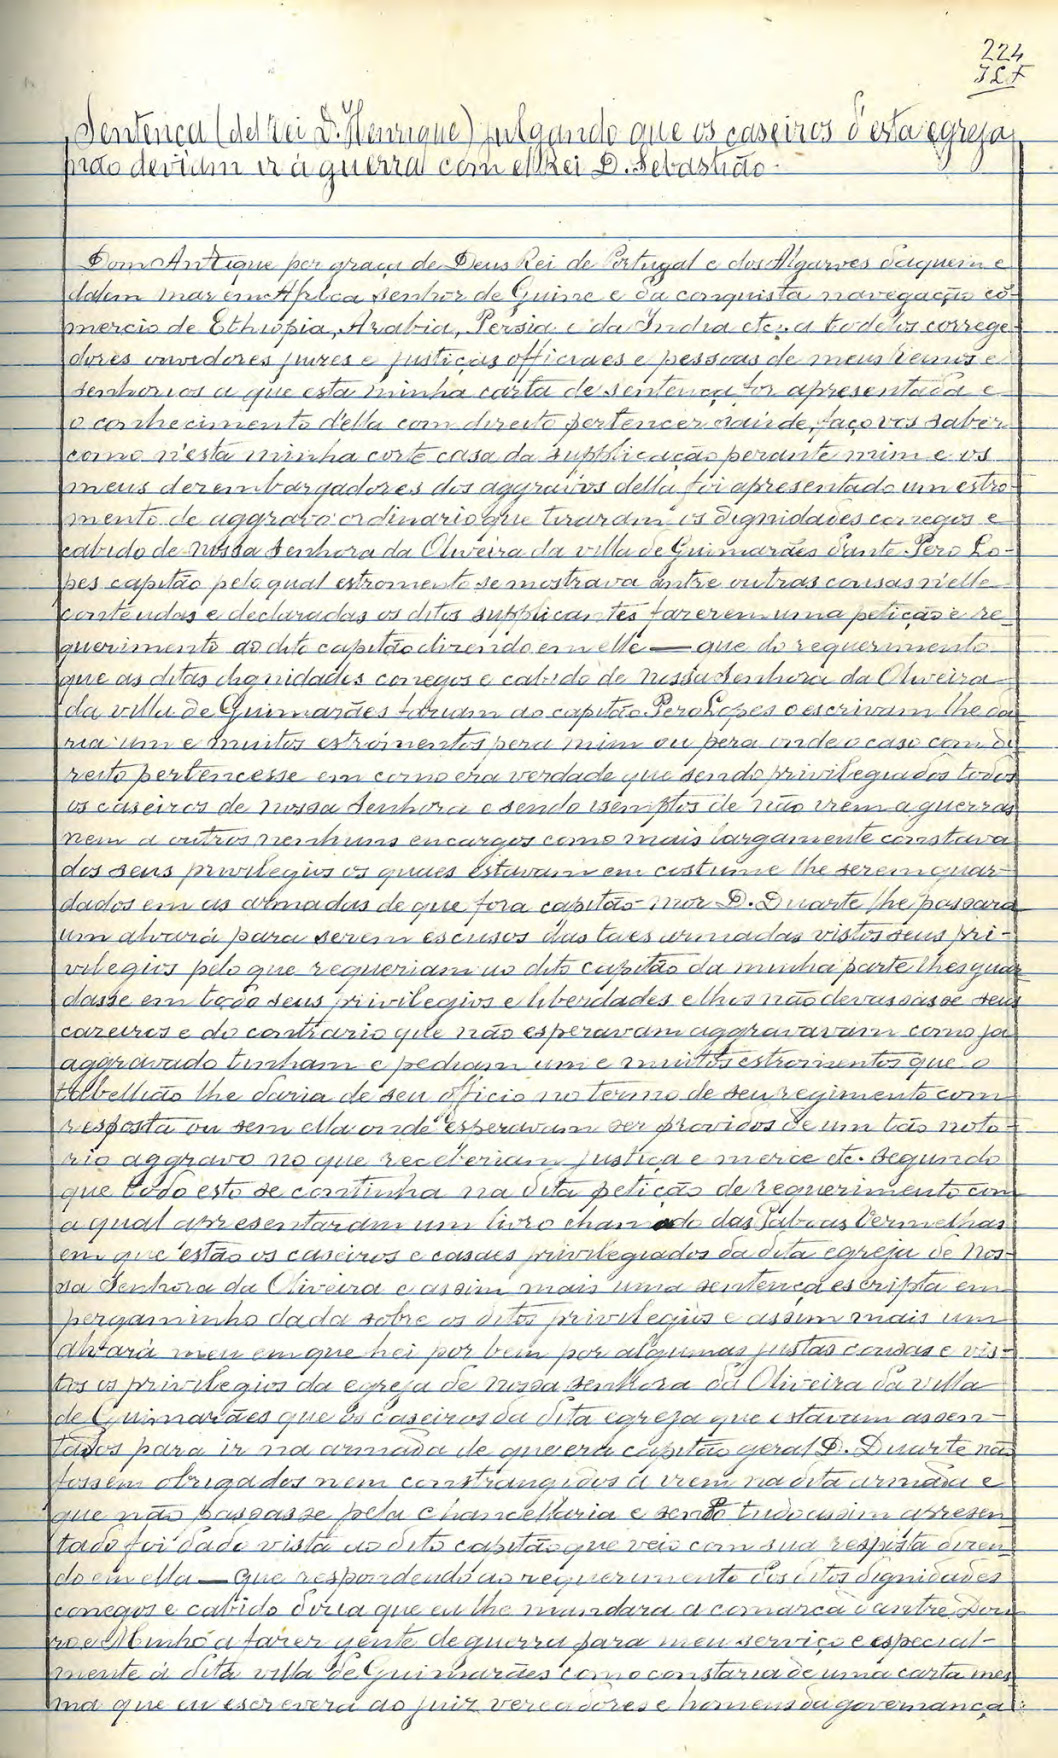 224
Sentença (del Rei D. Henrique) julgando que os caseiros d'esta egreja
não deviam ir á guerra com el Rei D. Sebastião.
Dom Anrique per graça de Deus Rei de Portugal e dos Algarves daquem e
dalem mar em Africa senhor de Guine e da conquista navegação co-
mercio de Ethiopia, Arabia, Persia e da India etc. a todolos correge-
dores ouvidores juizes e justiças officiaes e pessoas de meus reinos e
senhorios a que esta minha carta de sentença for apresentada e
o conhecimento d'ella com direito pertencer saúde, faço vos saber
como n'esta minha corte casa da supplicação perante mim e os
meus dezembargadores dos aggravos della foi apresentado um estro-
mento de aggravo ordinario que tiraram os dignidades conegos e
cabido de Nossa Senhora da Oliveira da villa de Guimarães dante Pero Lo-
pes capitão pelo qual estromento se mostrava antre outras cousas n'elle
conteudas e declaradas os ditos supplicantes fazerem uma petição e re-
querimento ao dito capitão dizendo em elle — que do requerimento
que as ditas dignidades conegos e cabido de Nossa Senhora da Oliveira
da villa de Guimarães faziam ao capitão Pero Lopes o escrivam lhe da-
ria um e muitos estromentos pera mim ou pera onde o caso com di-
reito pertencesse em como era verdade que sendo privilegiados todos
os caseiros de nossa Senhora e sendo isemptos de não irem a guerras
nem a outros nenhuns encargos como mais largamente constava
dos seus privilegios os quaes estavam em costume lhe serem guar-
dados em as armadas de que fora capitão-mor D. Duarte lhe passara
um alvará para serem escusos das taes armadas vistos seus pri-
vilegios pelo que requeriam ao dito capitão da minha parte lhes guar-
dasse em todo seus privilegios e liberdades e lhes não devassasse seus
cazeiros e do contrario que não esperavam aggravavam como ja
aggravado tinham e pediam um e muitos estromentos que o
tabellião lhe daria de seu officio no termo de seu regimento com
resposta ou sem ella onde esperavam ser providos de um tão noto-
rio aggravo no que receberiam justiça e merce etc. segundo
que todo esto se continha na dita petição de requerimento com
a qual apresentaram um livro chamado das Taboas Vermelhas
em que estão os caseiros e casaes privilegiados da dita egreja de Nos-
sa Senhora da Oliveira e assim mais uma sentença escripta em
pergaminho dada sobre os ditos privilegios e assim mais um
alvará meu em que hei por bem por algumas justas cousas e vis-
tos os privilegios da egreja de nossa senhora da Oliveira da villa
de Guimarães que os caseiros da dita egreja que estavam assen-
tados para ir na armada de que era capitão geral D. Duarte não
fossem obrigados nem constrangidos a irem na dita armada e
que não passasse pela chancellaria e sendo tudo assim apresen-
tado foi dado vista ao dito capitão que veio com sua resposta dizen-
do em ella — que respondendo ao requerimento dos ditos dignidades
conegos e cabido dizia que eu lhe mandara a comarca d'antre Dou-
ro e Minho a fazer gente de guerra para meu serviço e especial-
mente á dita villa de Guimarães como constaria de uma carta mes-
ma que eu escrevera ao juiz vereadores e homens da governança